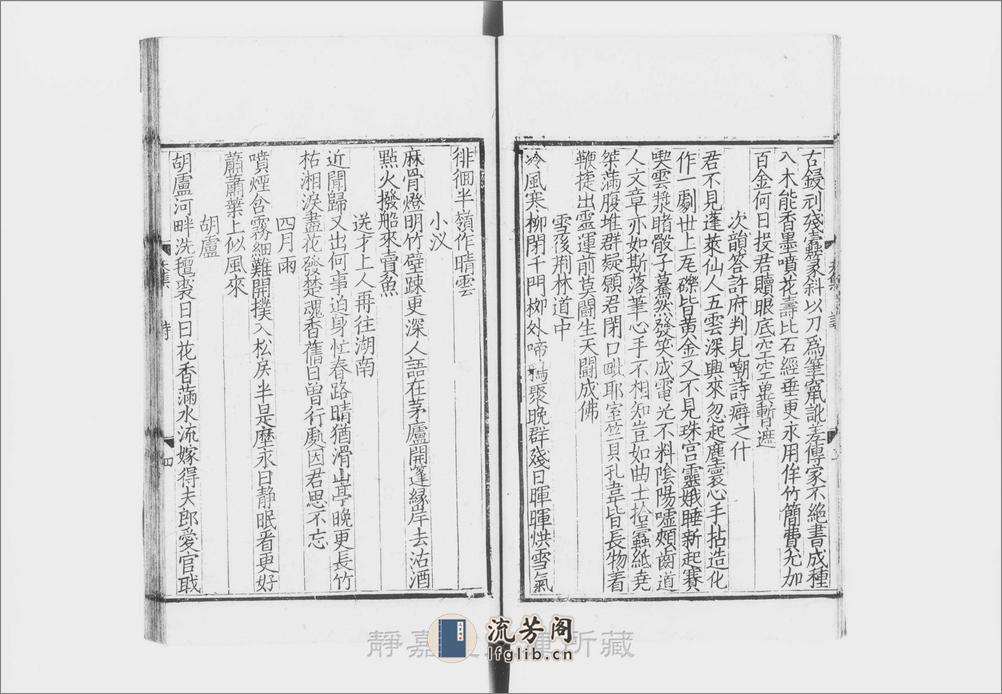 古鋟刋殘蠹蟫篆斜以刀爲筆窮訛差傳家不絶書成種
入木能香墨噴花壽比石經垂更永用侔竹簡費尤加
百金何日投君贖眼底空空畢暫遮
次韻答許府判見嘲詩癖之什
君不見蓬萊仙人五雲深興來忽起塵寰心手拈造化
作一劇世上瓦礫皆黄金又不見珠宫靈娥睡新起賽
喫雲漿賭骰子驀然發笑成電光不料陰陽噓頰齒道
人文章亦如斯落筆心手不相知豈如曲士拾蠹紙堯
桀滿腹堆群疑願君閉口毗耶室竺貝孔韋皆長物着
鞭捷出靈運前莫鬪生天鬪成佛
雪後荆林道中
冷風寒柳閉千門柳外啼聚晚群殘日暉暉烘雪氣
徘徊半嶺作晴雲
小汊
麻骨燈明竹壁踈更深人語在茅廬開篷縁岸去沽酒
㸃火撥船來賣魚
送才上人再往湖南
近聞歸又出何事迫身忙春路晴猶滑山亭晚更長竹
枯湘淚盡花發楚魂香舊日曾行處因君思不忘
四月雨
噴煙含霧細難開撲入松房半是塵永日静眠看更好
蕭蕭葉上似風來
胡盧
胡盧河畔洗氊裘日日花香滿水流嫁得夫郎愛官職
詩
四
流芳阁
lfglib.cn
靜嘉所藏